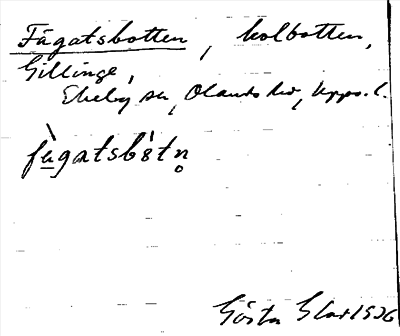 Fågatsbotten, kolbotten,
Gillinge,
Ekeby sn, Olands hd, Upps. l.
fågatsbòtn̥
Gösta 1936